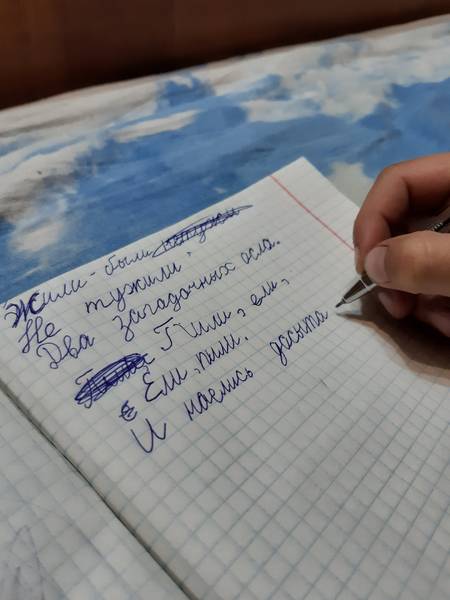 Жили-были
Не тужили,
Два загадочных осла.
Пили, ели,
Ели, пили.
И маелись досыта